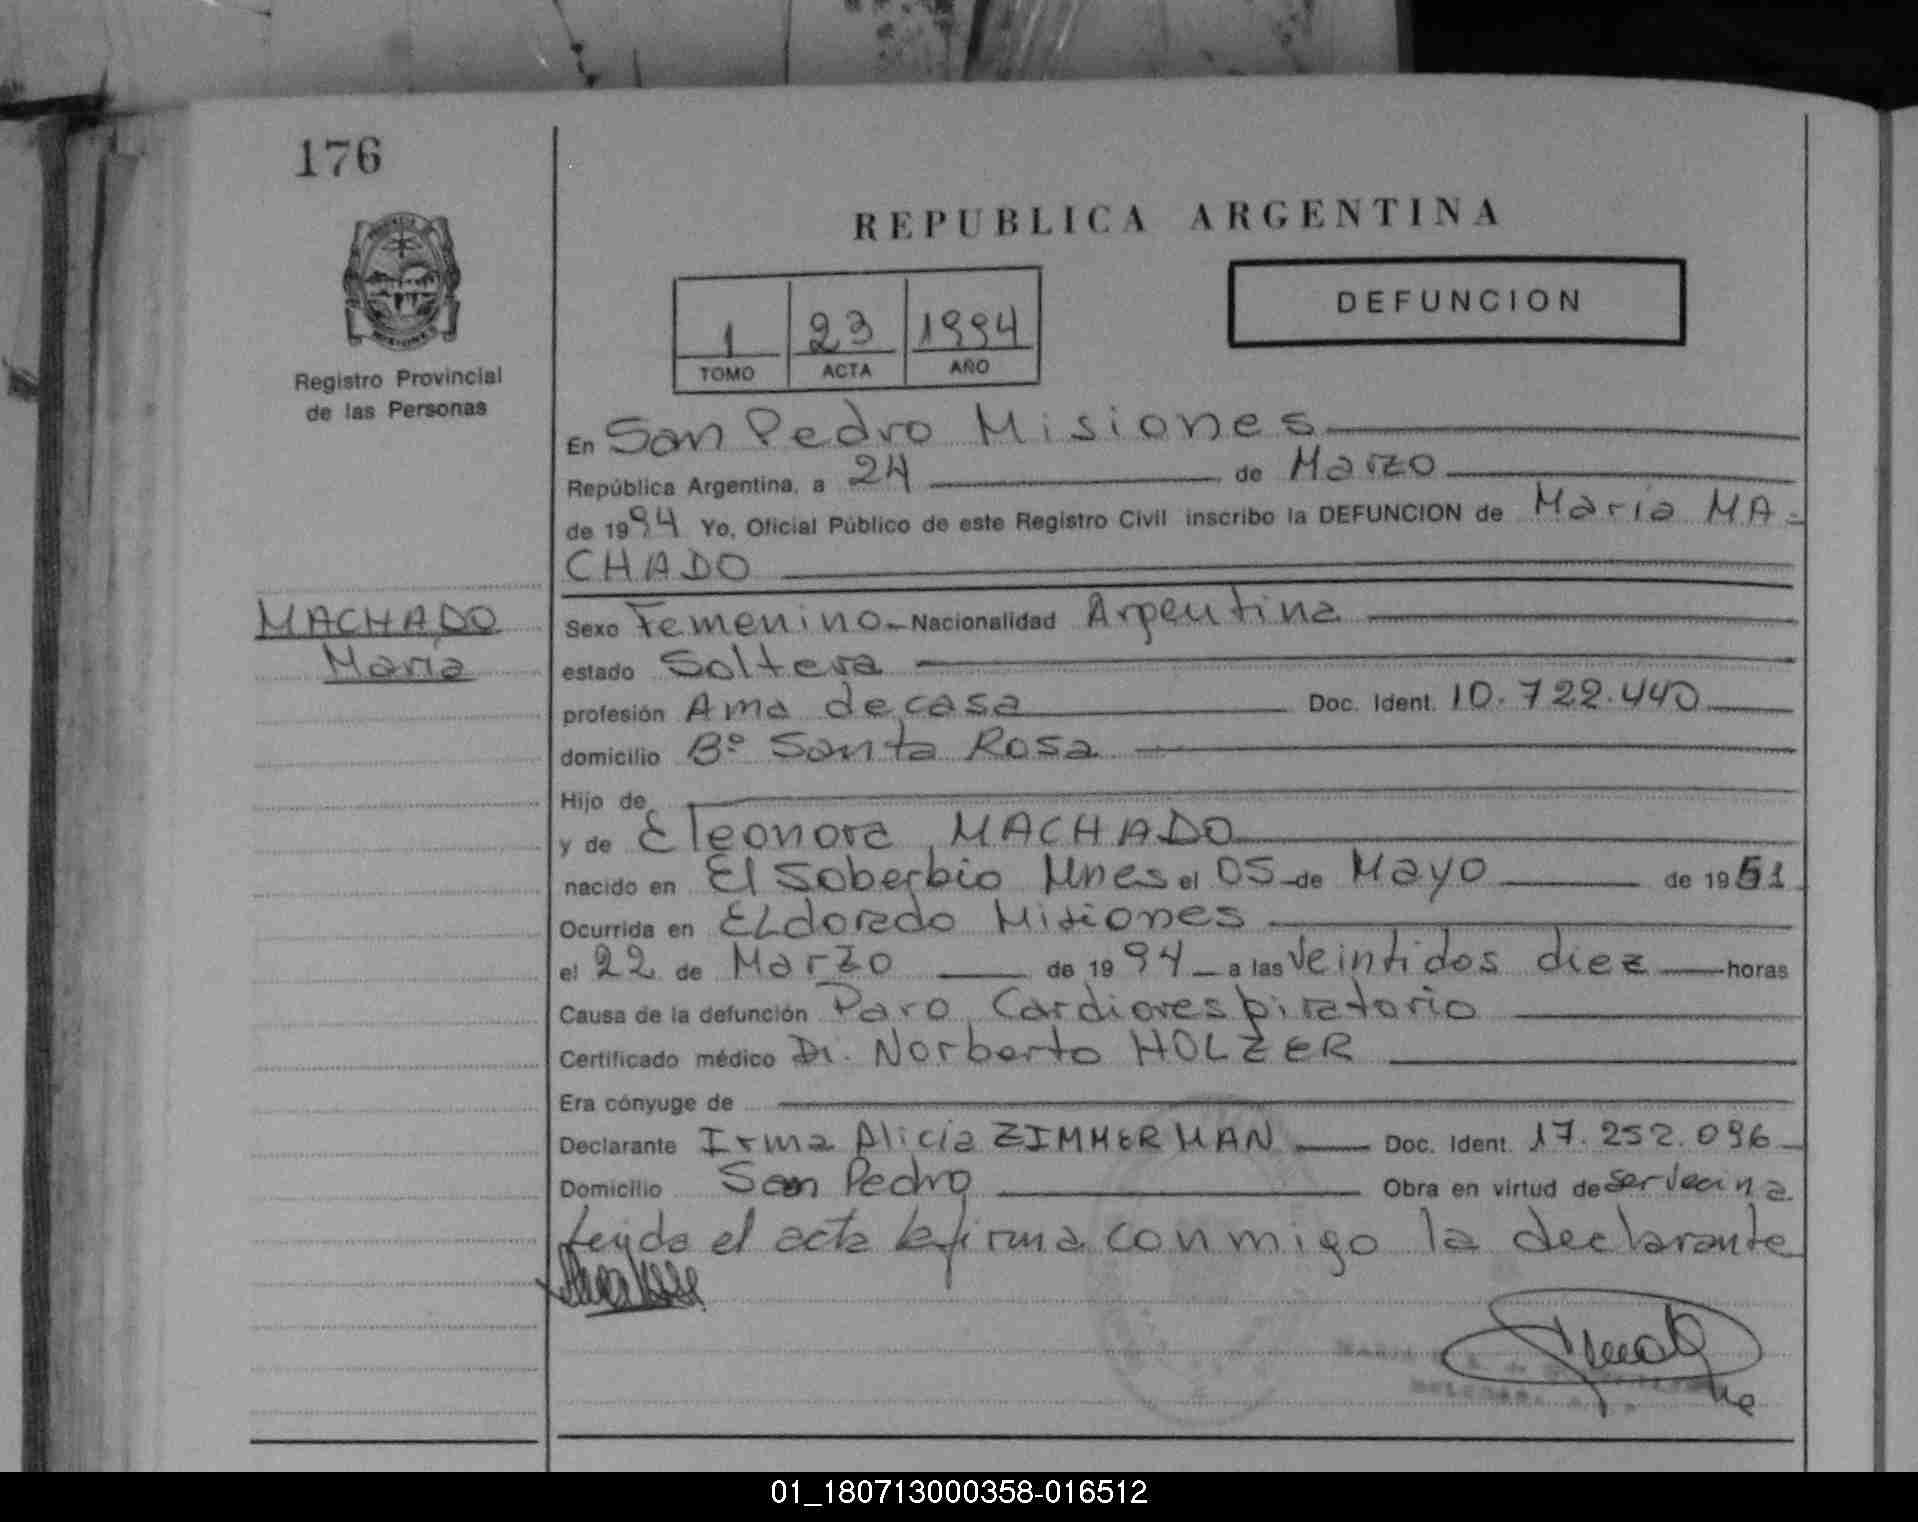 176
REPUBLICA ARGENTINA
DEFUNCION
1 23 1994
TOMO ACTA AÑO
Registro Provincial
de las Personas
En San Pedro Misiones
República Argentina, a 24 de Marzo
de 1994 Yo, Oficial Público de este Registro Civil inscribo la DEFUNCION de María MA-
CHADO
MACHADO
María
Sexo Femenino Nacionalidad Argentina
estado Soltera
profesión Ama de casa Doc. Ident. 10.722.440
domicilio Bº Santa Rosa
Hijo de
y de Eleonora MACHADO
nacido en El Soberbio Mnes el 05 de Mayo de 1951
Ocurrida en ELdorado Misiones
el 22 de Marzo de 1994 a las Veintidos diez horas
Causa de la defunción Paro Cardiorespiratorio
Certificado médico Dr. Norberto HOLZER
Era cónyuge de
Declarante Irma Alicia ZIMMERMAN Doc. Ident. 17.252.096
Domicilio San Pedro Obra en virtud de ser vecina
Leyda el acta la firma conmigo la declarante
01_180713000358-016512